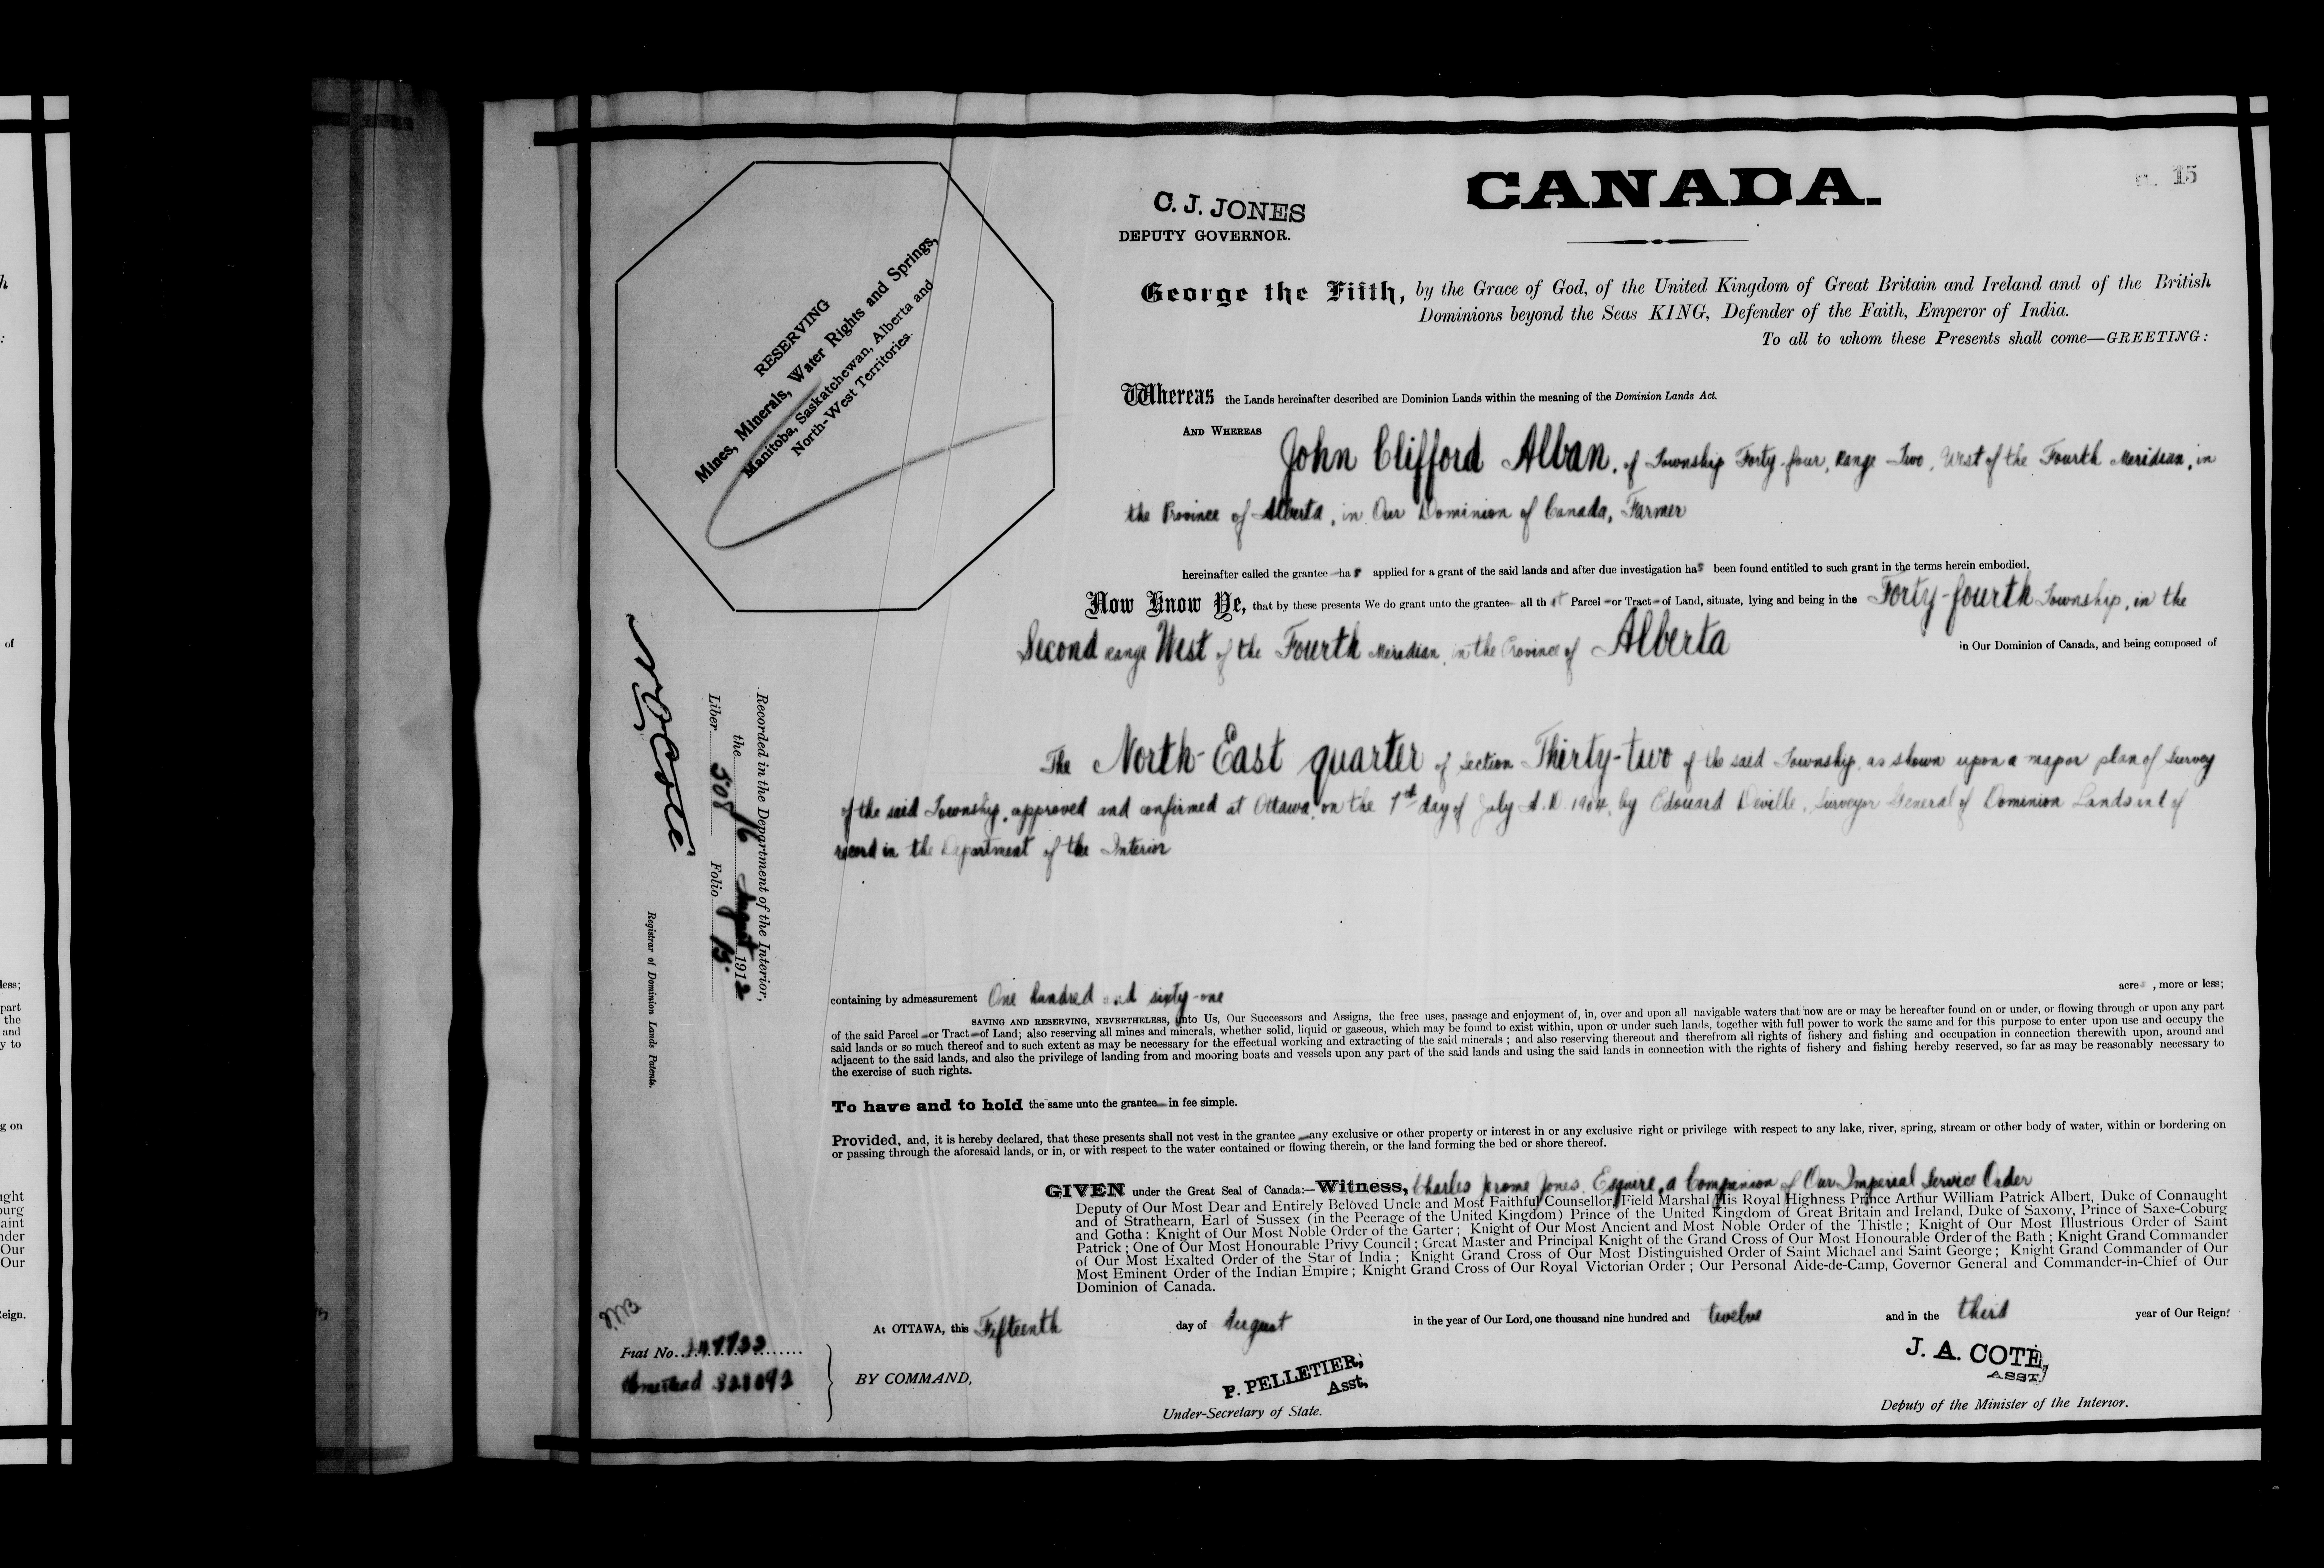 15
CANADA.
C. J. JONES
DEPUTY GOVERNOR.
George the Fifth, by the Grace of God, of the United Kingdom of Great Britain and Ireland and of the British
Dominions beyond the Seas KING, Defender of the Faith, Emperor of India.
To all to whom these Presents shall come—GREETING:
RESERVING
Mines, Minerals, Water Rights and Springs,
Manitoba, Saskatchewan, Alberta and
North-West Territories.
Whereas the Lands hereinafter described are Dominion Lands within the meaning of the Dominion Lands Act.
AND WHEREAS John Clifford Alban, of Township Forty-four, Range Two, West of the Fourth Meridian, in
the Province of Alberta, in Our Dominion of Canada, Farmer
hereinafter called the grantee has applied for a grant of the said lands and after due investigation has been found entitled to such grant in the terms herein embodied.
Now Know Ye, that by these presents We do grant unto the grantee all that Parcel or Tract of Land, situate, lying and being in the Forty-fourth Township, in the
Second range West of the Fourth Meridian, in the Province of Alberta in Our Dominion of Canada, and being composed of
The North-East quarter of Section Thirty-two of the said Township, as shown upon a map or plan of Survey
of the said Township, approved and confirmed at Ottawa, on the day of July A.D. 1904, by Edouard Deville, Surveyor General of Dominion Lands and of
record in the Department of the Interior
Recorded in the Department of the Interior,
the 16 August 1912
Liber 508 Folio 15.
N O Coté
Registrar of Dominion Lands Patents.
containing by admeasurement One hundred and sixty-one acres, more or less;
SAVING AND RESERVING, NEVERTHELESS, unto Us, Our Successors and Assigns, the free uses, passage and enjoyment of, in, over and upon all navigable waters that now are or may be hereafter found on or under, or flowing through or upon any part
of the said Parcel or Tract of Land; also reserving all mines and minerals, whether solid, liquid or gaseous, which may be found to exist within, upon or under such lands, together with full power to work the same and for this purpose to enter upon use and occupy the
said lands or so much thereof and to such extent as may be necessary for the effectual working and extracting of the said minerals; and also reserving thereout and therefrom all rights of fishery and fishing and occupation in connection therewith upon, around and
adjacent to the said lands, and also the privilege of landing from and mooring boats and vessels upon any part of the said lands and using the said lands in connection with the rights of fishery and fishing hereby reserved, so far as may be reasonably necessary to
the exercise of such rights.
To have and to hold the same unto the grantee in fee simple.
Provided, and, it is hereby declared, that these presents shall not vest in the grantee any exclusive or other property or interest in or any exclusive right or privilege with respect to any lake, river, spring, stream or other body of water, within or bordering on
or passing through the aforesaid lands, or in, or with respect to the water contained or flowing therein, or the land forming the bed or shore thereof.
GIVEN under the Great Seal of Canada:—Witness, Charles Jerome Jones, Esquire, a Companion of Our Imperial Service Order
Deputy of Our Most Dear and Entirely Beloved Uncle and Most Faithful Counsellor, Field Marshal His Royal Highness Prince Arthur William Patrick Albert, Duke of Connaught
and of Strathearn, Earl of Sussex (in the Peerage of the United Kingdom) Prince of the United Kingdom of Great Britain and Ireland, Duke of Saxony, Prince of Saxe-Coburg
and Gotha: Knight of Our Most Noble Order of the Garter; Knight of Our Most Ancient and Most Noble Order of the Thistle; Knight of Our Most Illustrious Order of Saint
Patrick; One of Our Most Honourable Privy Council; Great Master and Principal Knight of the Grand Cross of Our Most Honourable Order of the Bath; Knight Grand Commander
of Our Most Exalted Order of the Star of India; Knight Grand Cross of Our Most Distinguished Order of Saint Michael and Saint George; Knight Grand Commander of Our
Most Eminent Order of the Indian Empire; Knight Grand Cross of Our Royal Victorian Order; Our Personal Aide-de-Camp, Governor General and Commander-in-Chief of Our
Dominion of Canada.
At OTTAWA, this Fifteenth day of August in the year of Our Lord, one thousand nine hundred and twelve and in the third year of Our Reign.
Fiat No.
Homestead
BY COMMAND,
P. PELLETIER,
Asst,
Under-Secretary of State.
J. A. COTE,
ASST.
Deputy of the Minister of the Interior.